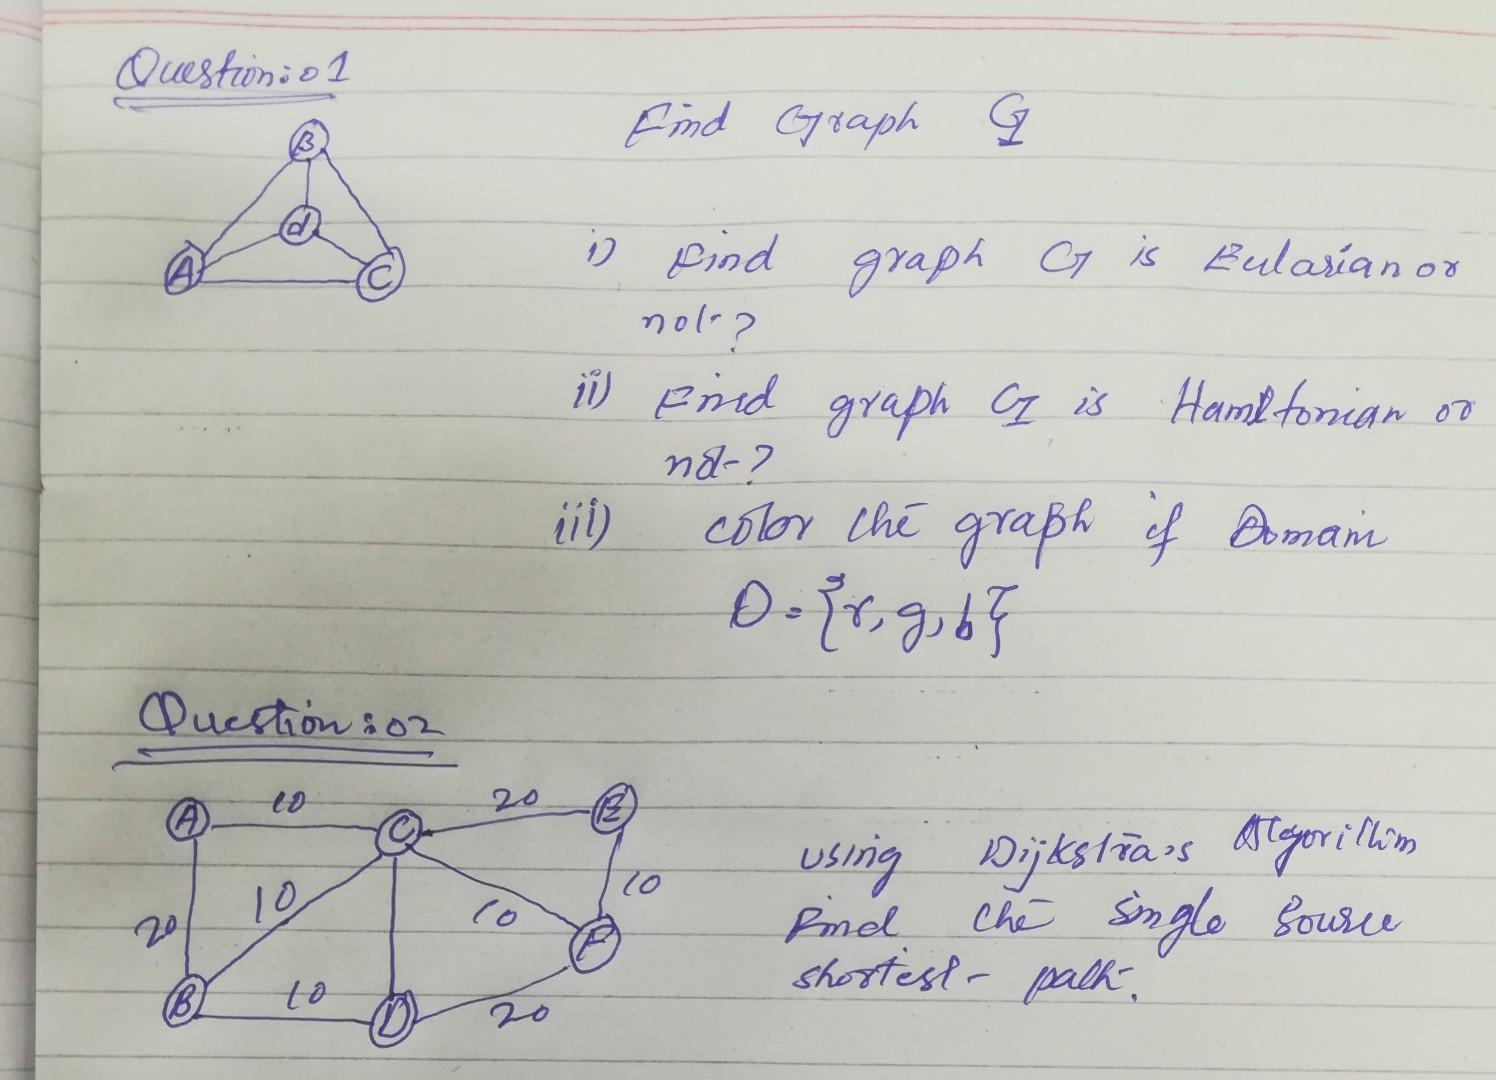 Question:01
B
d
A
C
Find Graph G
i) Find graph G is Eularian or
not-?
ii) Find graph G is Hamiltonian or
not-?
iii) color the graph if Domain
D = {r, g, b}
Question:02
A 10 C 20 E
20 10 10 10 F
B 10 D 20
using Dijkstra's Algorithm
Find the single source
shortest- path.